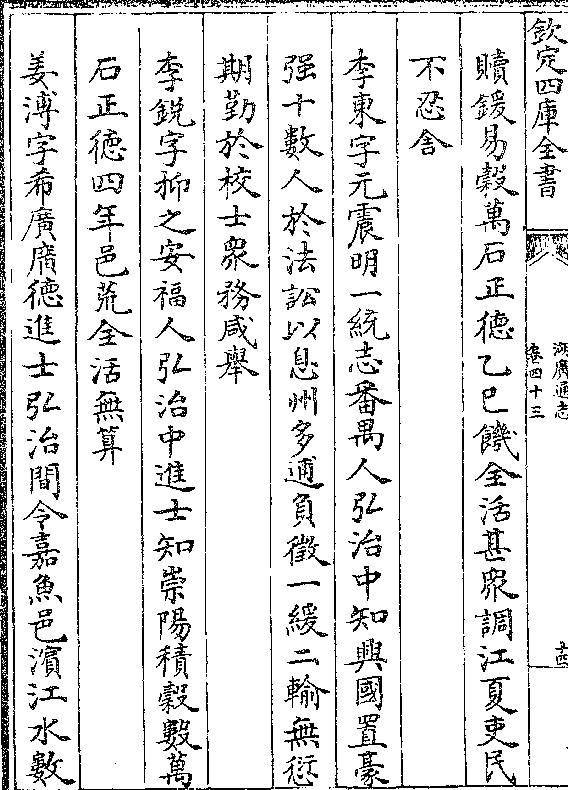 欽定四庫全書
湖廣通志
卷四十三
十四
贖鍰易穀萬石正德乙巳饑全活甚衆調江夏吏民
不忍舎
李東字元震明一統志番禺人弘治中知興國置豪
强十數人於法訟以息州多逋負徵一緩二輸無愆
期勤於校士衆務咸舉
李鋭字抑之安福人弘治中進士知崇陽積穀數萬
石正徳四年邑荒全活無算
姜溥字希廣廣德進士弘治間令嘉魚邑濱江水數